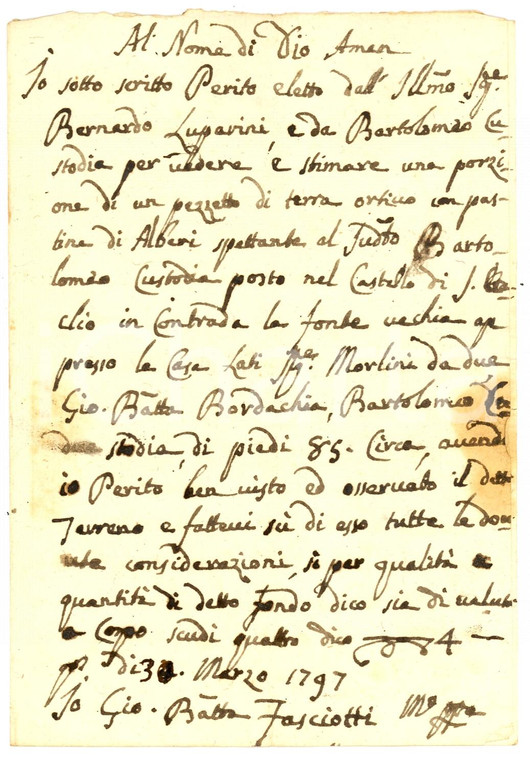 Al Nome di Dio Amen
Io sotto scritto Perito eletto dall' Illmo Sge
Bernardo Luparini, e da Bartolomeo Cu-
stodia per vedere e stimare una porzi-
one di un pezzetto di terra ortivo con pas-
tina di Alberi spettante al sudto Barto-
lomeo Custodia posto nel Castello di S. Era-
clio in Contrada la fonte vechia ap
presso la Casa Lati Sge. Morlini da due
Gio. Batta Bordachia, Bartolomeo
stodia, di piedi 85. Circa, avendo
io Perito ben visto ed osservato il detto
Terreno e fattevi sù di esso tutte le dov-
ute considerazioni, sì per qualità e
quantità di detto fondo dico sia di valuta
a Corpo scudi quattro dico 4 —
di Marzo 1797
Io Gio. Batta Fasciotti